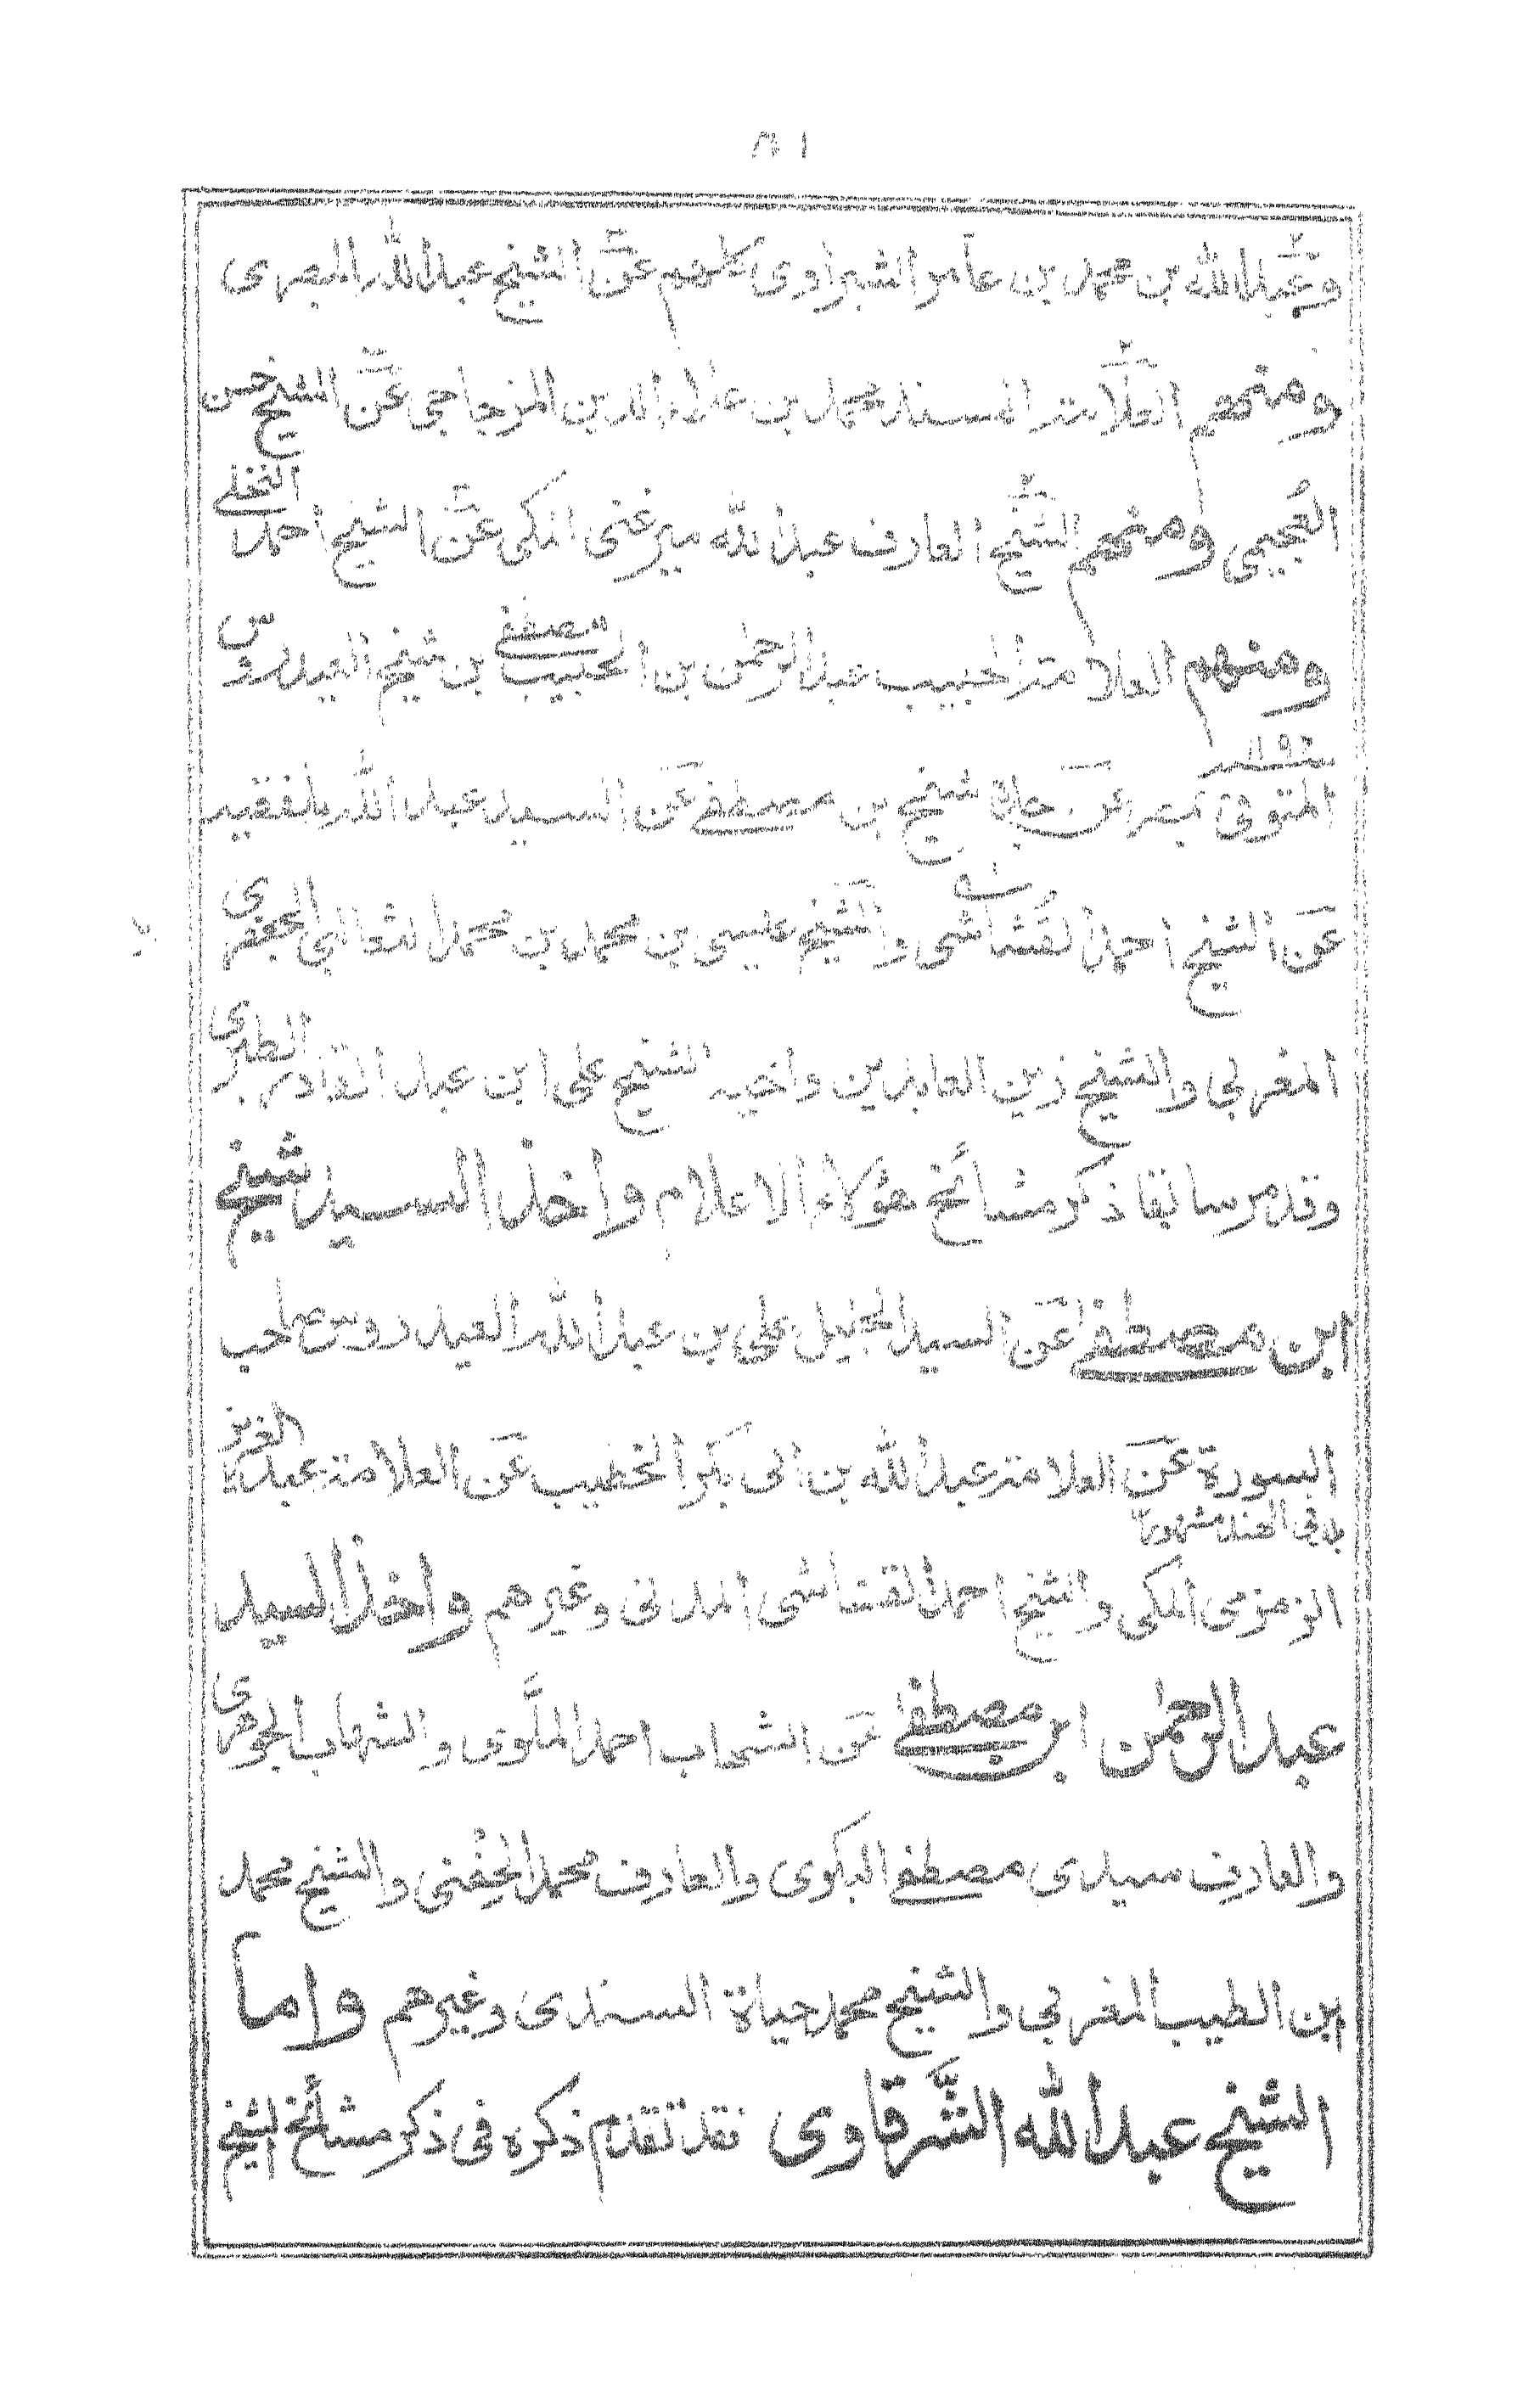 وعبد الله بن محمد بن عامر الشبراوى كلهم عن الشيخ عبد الله البصرى
ومنهم العلامة المسند محمد بن علاء الدين المزجاجى عن الشيخ حسن
العُجيمى ومنهم الشيخ العارف عبد الله ميرغنى المكى عن الشيخ احمد النخلى
ومنهم العلامة الحبيب عبد الرحمن بن الحبيب مصطفى بن شيخ العيدروس
المتوفى بمصر سنة ١١٩٢ عن جده شيخ بن مصطفى عن السيد عبد الله بلفقيه
عن الشيخ احمد القُشاشى والشيخ عيسى بن محمد بن محمد الثعالبى الجعفرى
المغربى والشيخ زين العابدين واخيه الشيخ على ابن عبد القادر الطبرى
وقد مر سابقا ذكر مشائخ هؤلاء الاعلام واخذ السيد شيخ
ابن مصطفى عن السيد الجليل على بن عبد الله العيدروس صاحب
السورة عن العلامة عبد الله بن ابى بكر الخطيب عن العلامة عبد العزيز
بلد فى الهند مشهورة
الزمزمى المكى والشيخ احمد القشاشى المدنى وغيرهم واخذ السيد
عبد الرحمن ابن مصطفى عن الشهاب احمد الملَّوى والشهاب الجوهرى
والعارف سيدى مصطفى البكرى والعارف محمد الحِفْنى والشيخ محمد
ابن الطيب المغربى والشيخ محمد حياة السندى وغيرهم واما
الشيخ عبد الله الشَّرقاوى فقد تقدم ذكره فى ذكر مشائخ الشيخ